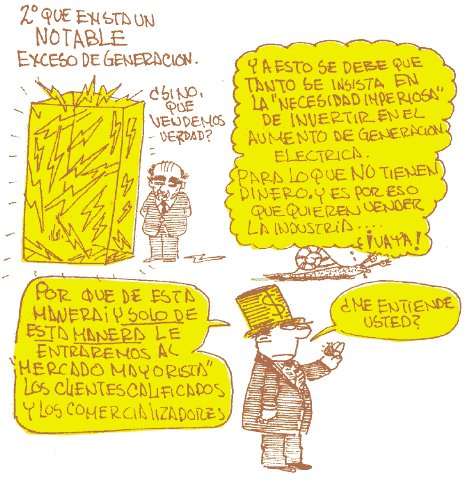 2º QUE EXISTA UN
NOTABLE
EXCESO DE GENERACION.
¿SI NO,
QUE
VENDEMOS
VERDAD?
Y A ESTO SE DEBE QUE
TANTO SE INSISTA EN
LA "NECESIDAD IMPERIOSA"
DE INVERTIR EN EL
AUMENTO DE GENERACION
ELECTRICA.
PARA LO QUE NO TIENEN
DINERO, Y ES POR ESO
QUE QUIEREN VENDER
LA INDUSTRIA....
¡VAYA!
POR QUE DE ESTA
MANERA ¡Y SOLO DE
ESTA MANERA LE
ENTRAREMOS AL
"MERCADO MAYORISTA"
LOS CLIENTES CALIFICADOS
Y LOS COMERCIALIZADORES
$
¿ME ENTIENDE
USTED?